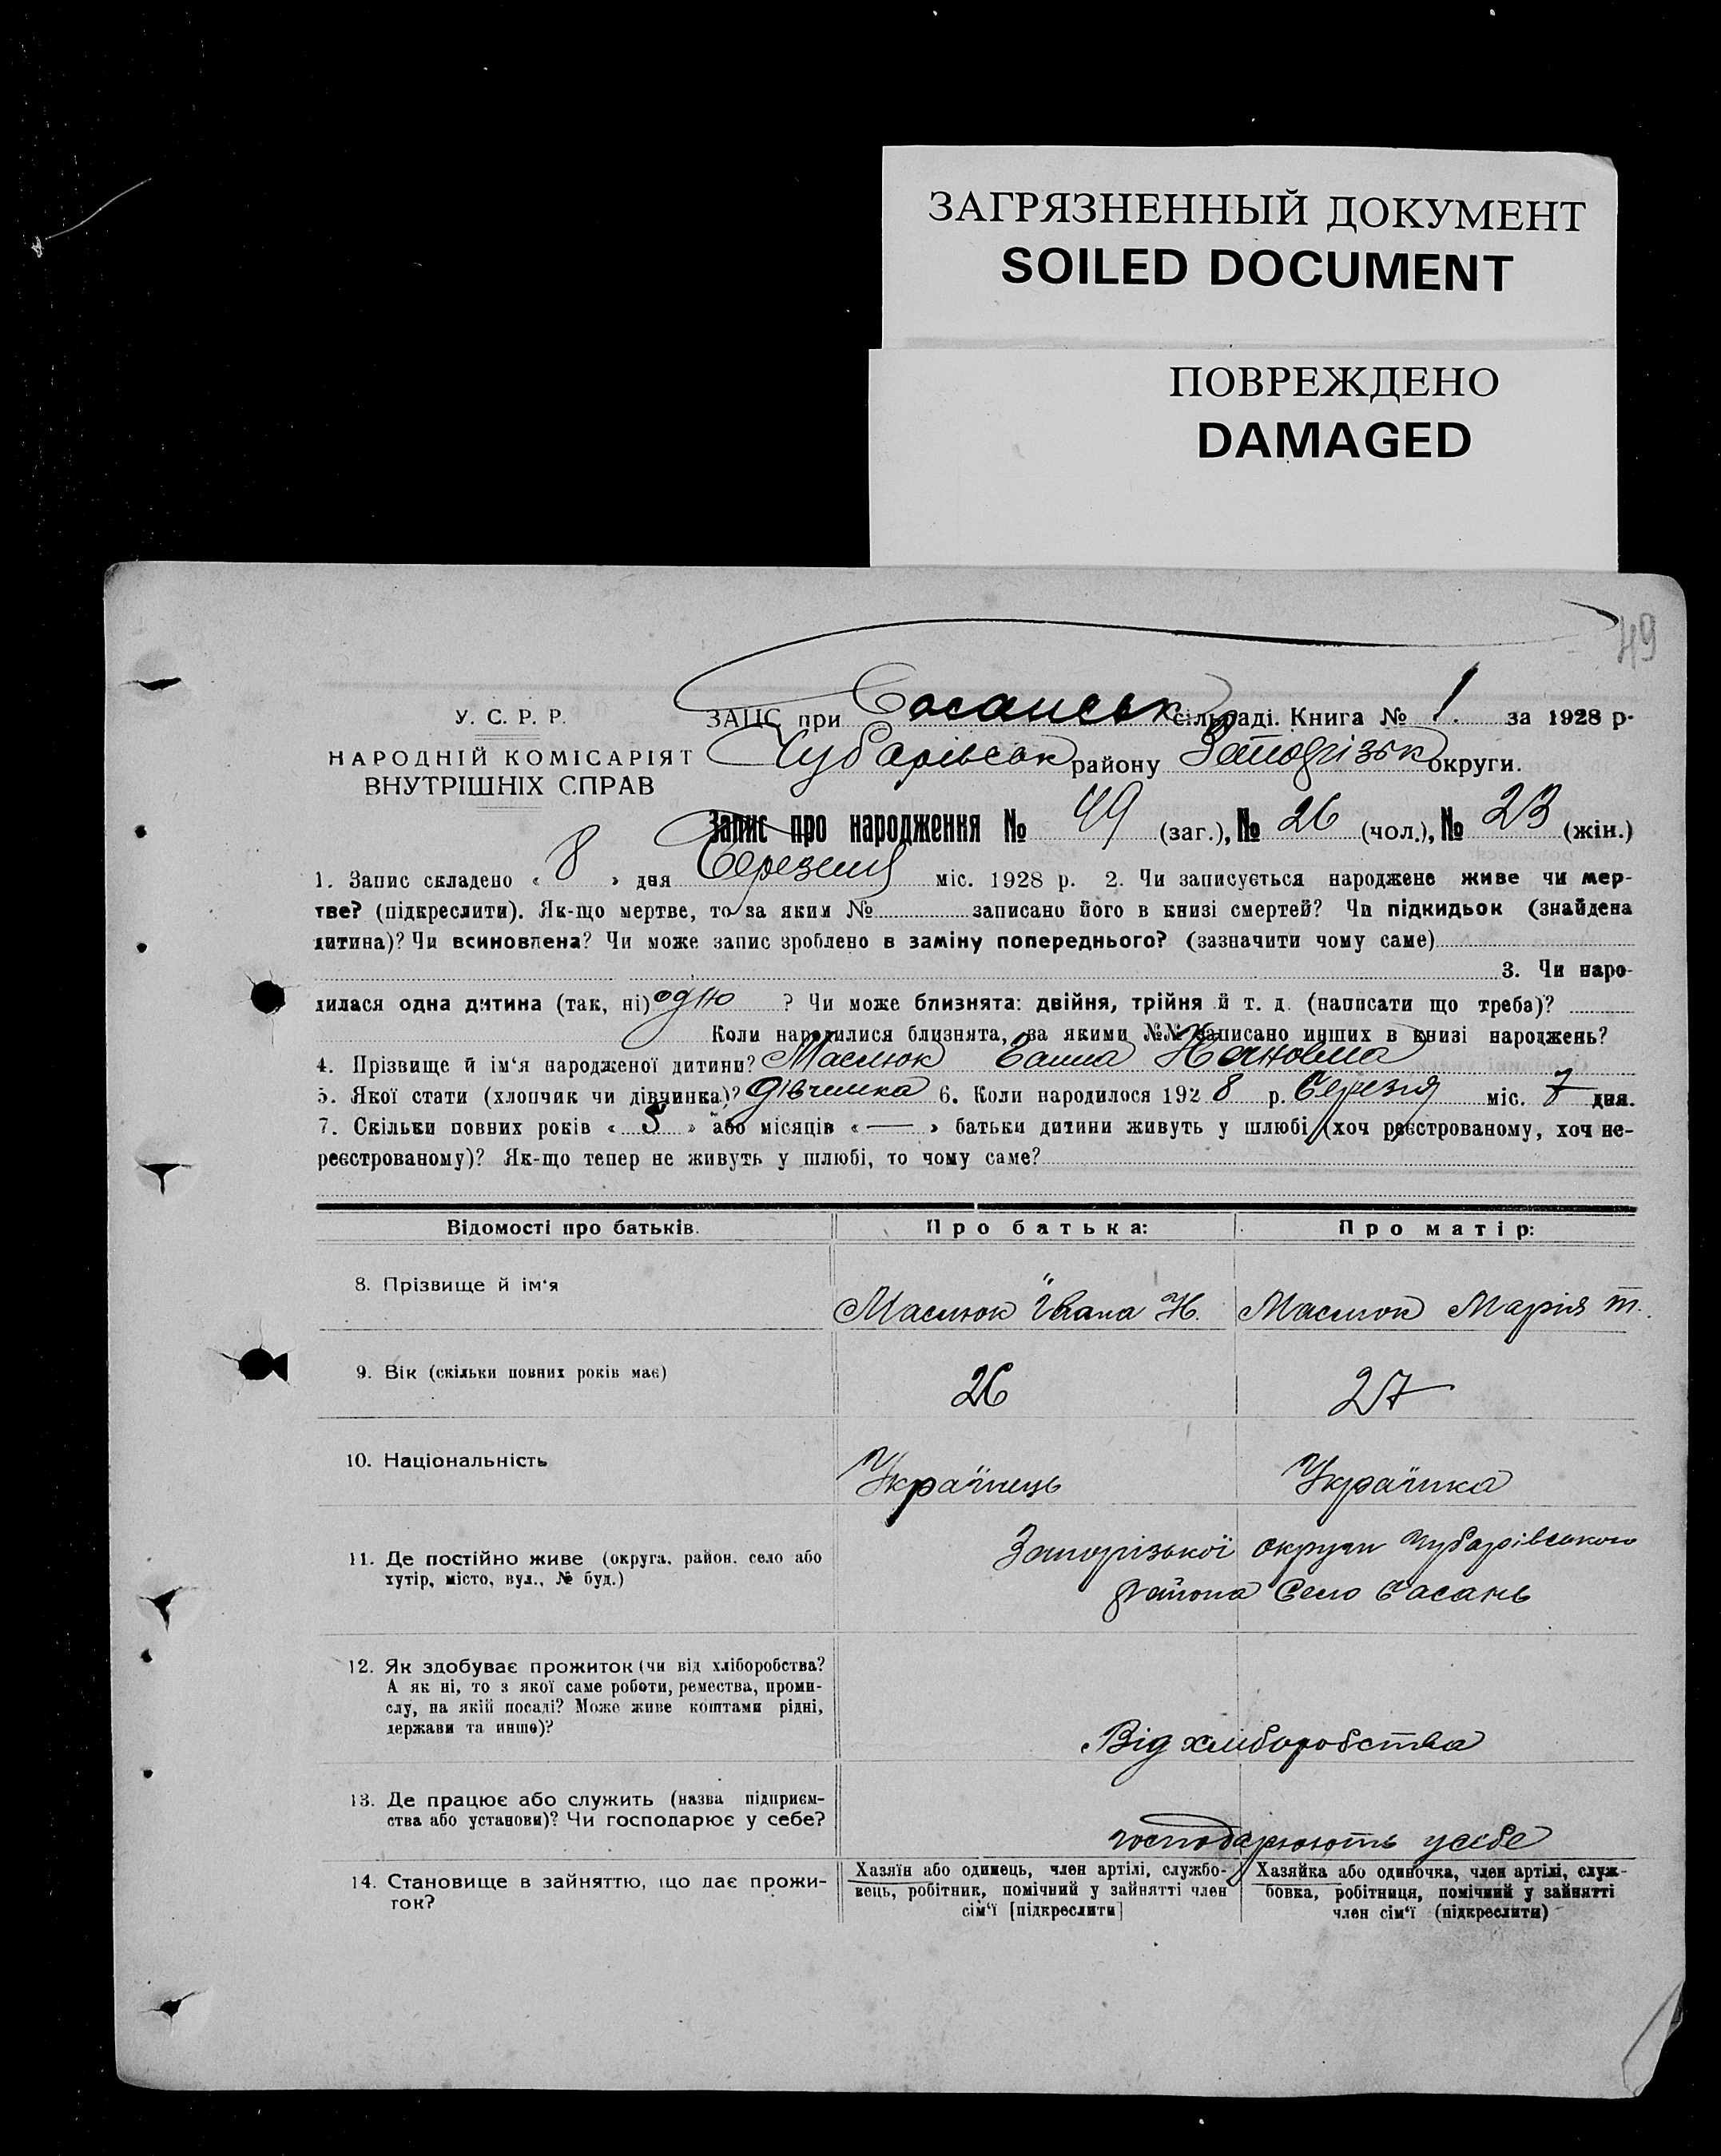 ЗАГРЯЗНЕННЫЙ ДОКУМЕНТ
SOILED DOCUMENT
ПОВРЕЖДЕНО
DAMAGED
49
У. С. Р. Р.
НАРОДНІЙ КОМІСАРІЯТ
ВНУТРІШНІХ СПРАВ
ЗАГС при Басанськ сільраді. Книга № 1. за 1928 р.
Чубарівськ району Запорізьк округи.
Запис про народження № 49 (заг.), № 26 (чол.), № 23 (жін.)
1. Запис складено « 8 » дня Березня міс. 1928 р. 2. Чи записується народжене живе чи мер-
тве? (підкреслити). Як-що мертве, то за яким № записано його в книзі смертей? Чи підкидьок (знайдена
дитина)? Чи всиновлена? Чи може запис зроблено в заміну попереднього? (зазначити чому саме)
3. Чи наро-
дилася одна дитина (так, ні) одно ? Чи може близнята: двійня, трійня й т. д. (написати що треба)?
Коли народилися близнята, за якими №№ записано инших в книзі народжень?
4. Прізвище й ім'я народженої дитини? Маслюк
5. Якої стати (хлопчик чи дівчинка)? дівчинка 6. Коли народилося 192 8 р. Березня міс. 7 дня.
7. Скільки повних років « 5 » або місяців « — » батьки дитини живуть у шлюбі (хоч реєстрованому, хоч не-
реєстрованому)? Як-що тепер не живуть у шлюбі, то чому саме?
Відомості про батьків. Про батька: Про матір:
8. Прізвище й ім'я
Маслюк Івана Н. Маслюк Марія Т.
9. Вік (скільки повних років має)
26 27
10. Національність
Українець Українка
11. Де постійно живе (округа, район, село або
хутір, місто, вул., № буд.)
Запорізької округи Чубарівського
района Село Басань
12. Як здобуває прожиток (чи від хліборобства?
А як ні, то з якої саме роботи, ремества, проми-
слу, на якій посаді? Може живе коштами рідні,
держави та инше)?
Від хліборобства
13. Де працює або служить (назва підприєм-
ства або установи)? Чи господарює у себе?
господарюють у себе
14. Становище в зайняттю, що дає прожи-
ток?
Хазяїн або одинець, член артілі, службо-
вець, робітник, помічний у зайнятті член
сім'ї [підкреслити]
Хазяйка або одиночка, член артілі, служ-
бовка, робітниця, помічний у зайнятті
член сім'ї (підкреслити)